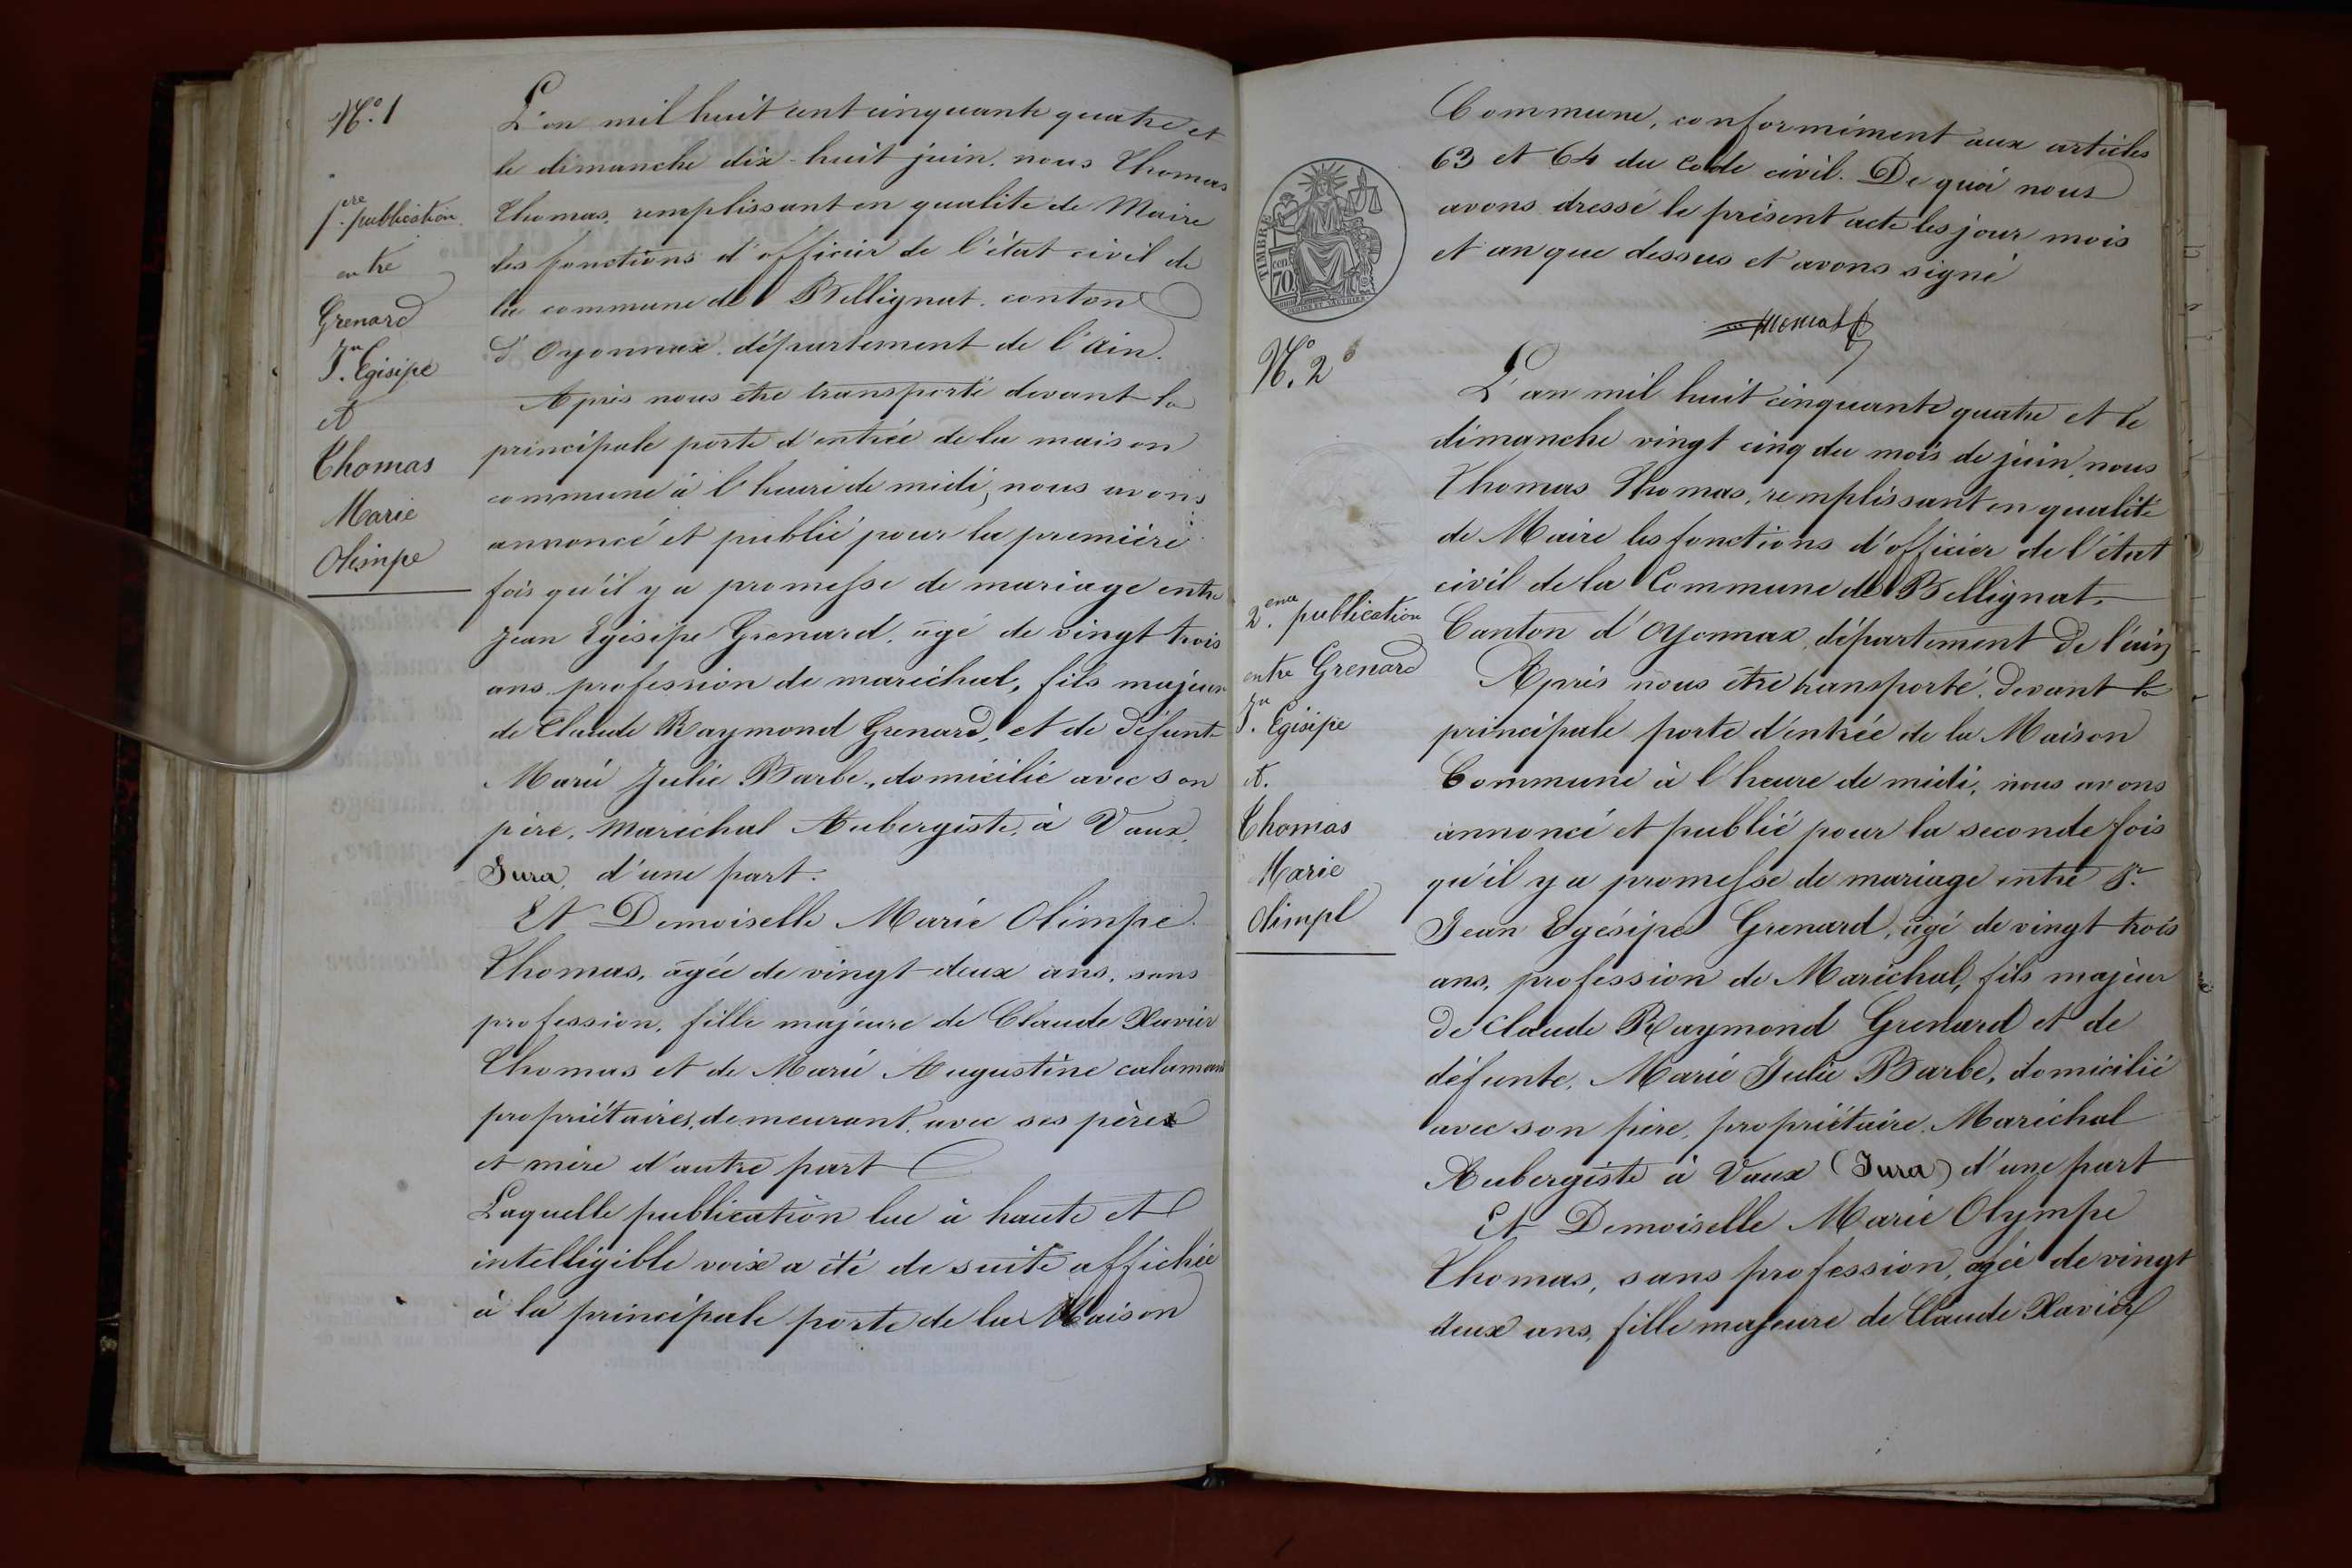 N.o 1
1.ere publication
entre
Grenard
J.n Egisipe
et
Thomas
Marie
Olimpe
L'an mil huit cent cinquante quatre et
le dimanche dix-huit juin. nous Thomas
Thomas, remplissant en qualité de Maire
les fonctions d'officier de l'état civil de
la commune de Bellignat. canton
d'Oyonnax. département de l'Ain.
Après nous être transporté devant la
principale porte d'entrée de la maison
commune à l'heure de midi, nous avons
annoncé et publié pour la première
fois qu'il y a promesse de mariage entre
Jean Egisipe Grenard. âgé de vingt trois
ans profession de maréchal, fils majeur
de Claude Raymond Grenard, et de défunte
Marie Julie Barbe, domicilié avec son
père, maréchal Aubergiste, à Vaux,
Jura, d'une part.
Et Demoiselle Marie Olimpe
Thomas, âgée de vingt-deux ans, sans
profession, fille majeure de Claude Xavier
Thomas et de Marie Augustine calamard
propriétaires, demeurant avec ses père
et mère d'autre part
Laquelle publication lue à haute et
intelligible voix a été de suite affichée
à la principale porte de la Maison
TIMBRE
70
Commune, conformément aux articles
63 et 64 du Code civil. De quoi nous
avons dressé le présent acte les jour mois
et an que dessus et avons signé
Thomas
N.o 2
2.eme publication
entre Grenard
J.n Egisipe
et.
Thomas
Marie
Olimpe
L'an mil huit cinquante quatre et le
dimanche vingt cinq du mois de juin, nous
Thomas Thomas, remplissant en qualité
de Maire les fonctions d'officier de l'état
civil de la Commune de Bellignat.
Canton d'Oyonnax, département de l'ain
Après nous être transporté devant la
principale porte d'entrée de la Maison
Commune à l'heure de midi, nous avons
annoncé et publié pour la seconde fois
qu'il y a promesse de mariage entre S.r
Jean Egésipe Grenard, âgé de vingt trois
ans, profession de Maréchal, fils majeur
de Claude Raymond Grenard et de
défunte, Marie Julie Barbe, domicilié
avec son père, propriétaire Maréchal
Aubergiste à Vaux (Jura) d'une part
Et Demoiselle Marie Olympe
Thomas, sans profession, agée de vingt
deux ans, fille majeure de Claude Xavier